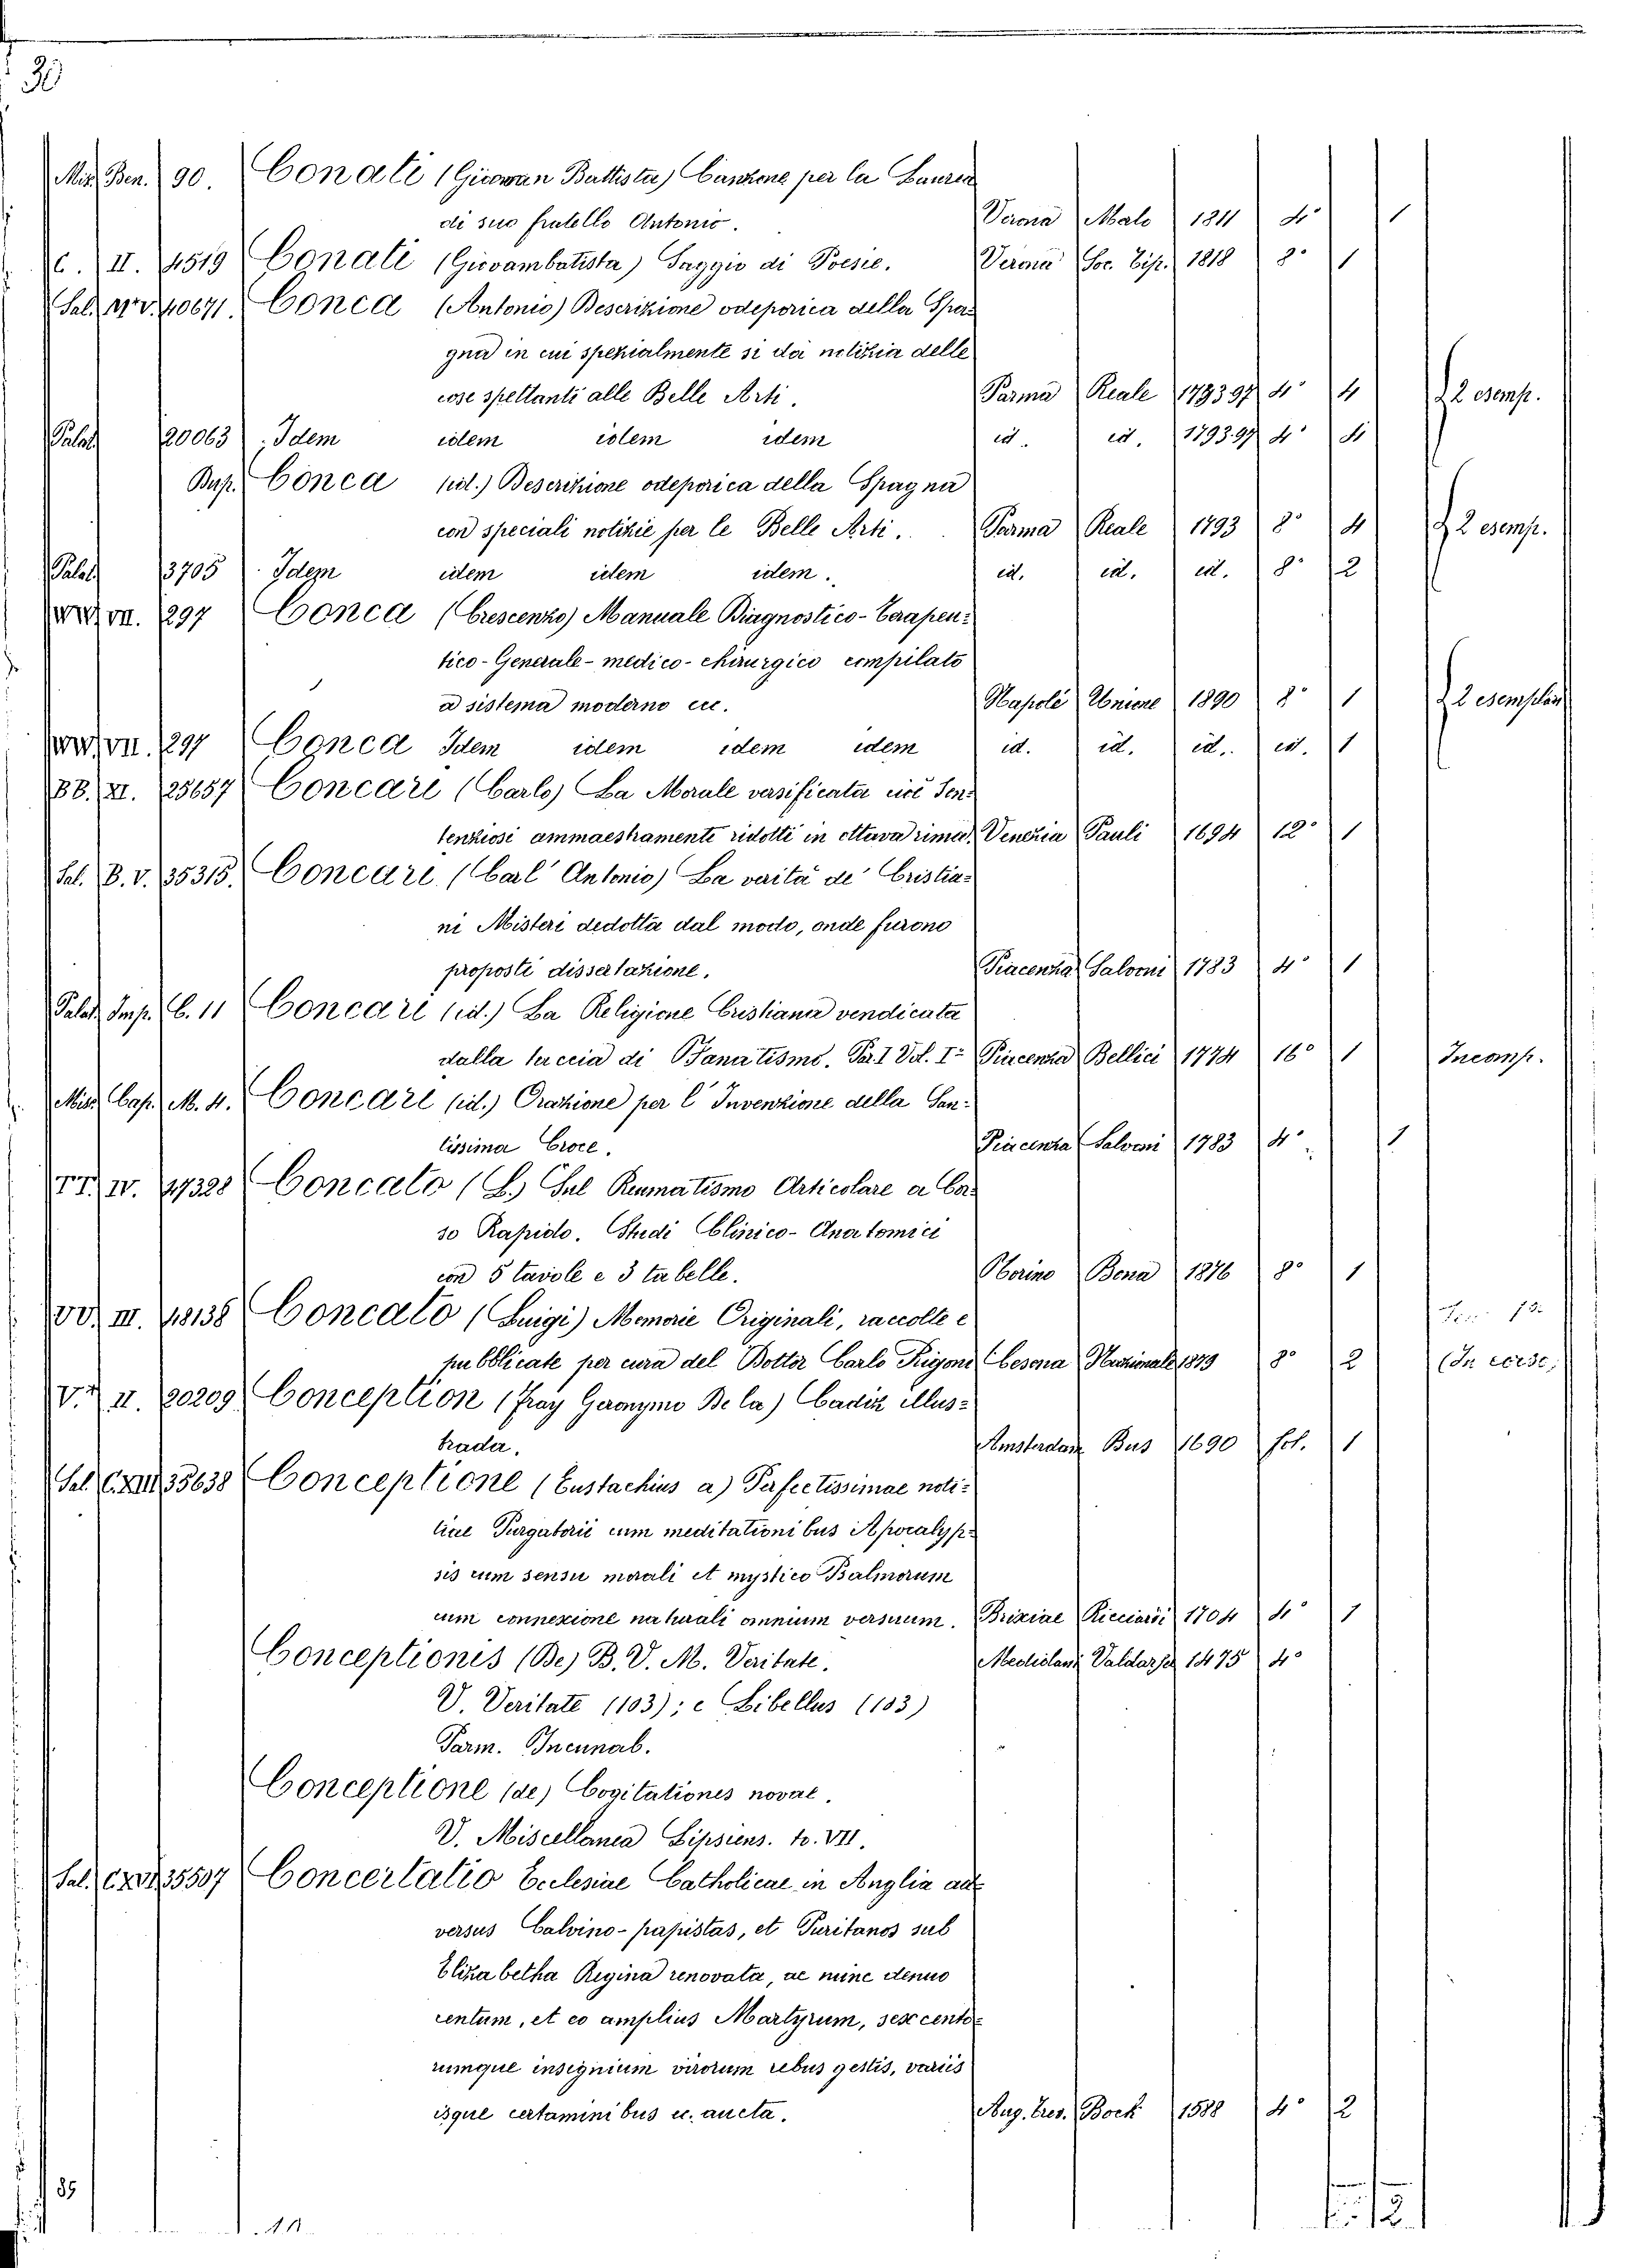 30
Mis. Ben. 90. Conati (Giovan Battista) Canzone per la Laurea
di suo fratello Antonio. Verona Malo 1811 4° 1
C. II. 4519 Conati (Giovambatista) Saggio di Poesie. Verona Soc. Tip. 1818 8° 1
Sal. 40671. Conca (Antonio) Descrizione odeporica della Spa=
gna in cui spezialmente si da notizia delle
cose spettanti alle Belle Arti. Parma Reale 1793 97 4° 4 2 esemp.
Palat 20063. Idem idem idem idem id. id. 1793.97 4° 4
Bap. Conca (id.) Descrizione odeporica della Spagna
con speciali notizie per le Belle Arti. Parma Reale 1793 8° 4 2 esemp.
Palat 13705. Idem idem idem idem. id. id. id. 8° 2
VII. 297 Conca (Crescenzo) Manuale Diagnostico-Terapeu=
tico-Generale-medico-chirurgico compilato
a sistema moderno ecc. Napoli Unione 1890 8° 1 2 esemplari
VII. 297 Conca Idem idem idem idem id. id. id. id. 1
BB. XI. 25657 Concari (Carlo) La Morale versificata cioè Sen=
tenziosi ammaestramenti ridotti in ottava rima. Venezia Pauli 1694 12° 1
Sal. B. V. 35315. Concari (Carl' Antonio) La verità de' Cristia=
ni Misteri dedotta dal modo, onde furono
proposti dissertazione. Piacenza Salvoni 1783 4° 1
Palat. Imp. C. 11 Concari (id.) La Religione Cristiana vendicata
dalla taccia di Fanatismo. Par. I Vol. I° Piacenza Bellici 1774 16° 1 Incomp.
Misc. Cap. M. 4. Concari (id.) Orazione per l'Invenzione della San=
tissima Croce. Piacenza Salvoni 1783 4° 1
TT. IV. 17328 Concato (L.) Sul Reumatismo Articolare a Cor=
so Rapido. Studi Clinico-Anatomici
con 5 tavole e 3 tabelle. Torino Bona 1876 8° 1
VV. III. 18138 Concato (Luigi) Memorie Originali, raccolte e
pubblicate per cura del Dottor Carlo Rigoni Cesena Nazionale 1879 8° 2 (In corso)
II. 20209 Conception (Fray Geronymo De la) Cadiz illus=
trada. Amsterdam Bus 1690 fol. 1
Sal. C. XIII 35638 Conceptione (Eustachius a) Perfectissimae noti=
tiae Purgatorii cum meditationibus Apocalyp=
sis cum sensu morali et mystico Psalmorum
cum connexione naturali omnium versuum. Brixiae Ricciardi 1704 4° 1
Conceptionis (De) B. V. M. Veritate. Mediolani Valdarfer 1475 4°
V. Veritate (103); e Libellus (103)
Parm. Incunab.
Conceptione (de) Cogitationes novae.
V. Miscellanea Lipsiens. to. VII.
Sal. 35507 Concertatio Ecclesiae Catholicae in Anglia ad=
versus Calvino-papistas, et Puritanos sub
Elizabetha Regina renovata, ac nunc denuo
centum, et eo amplius Martyrum, sexcento=
rumque insignium virorum rebus gestis, variis
isque certaminibus ec. aucta. Aug. Tres. Bock 1588 4° 2
85